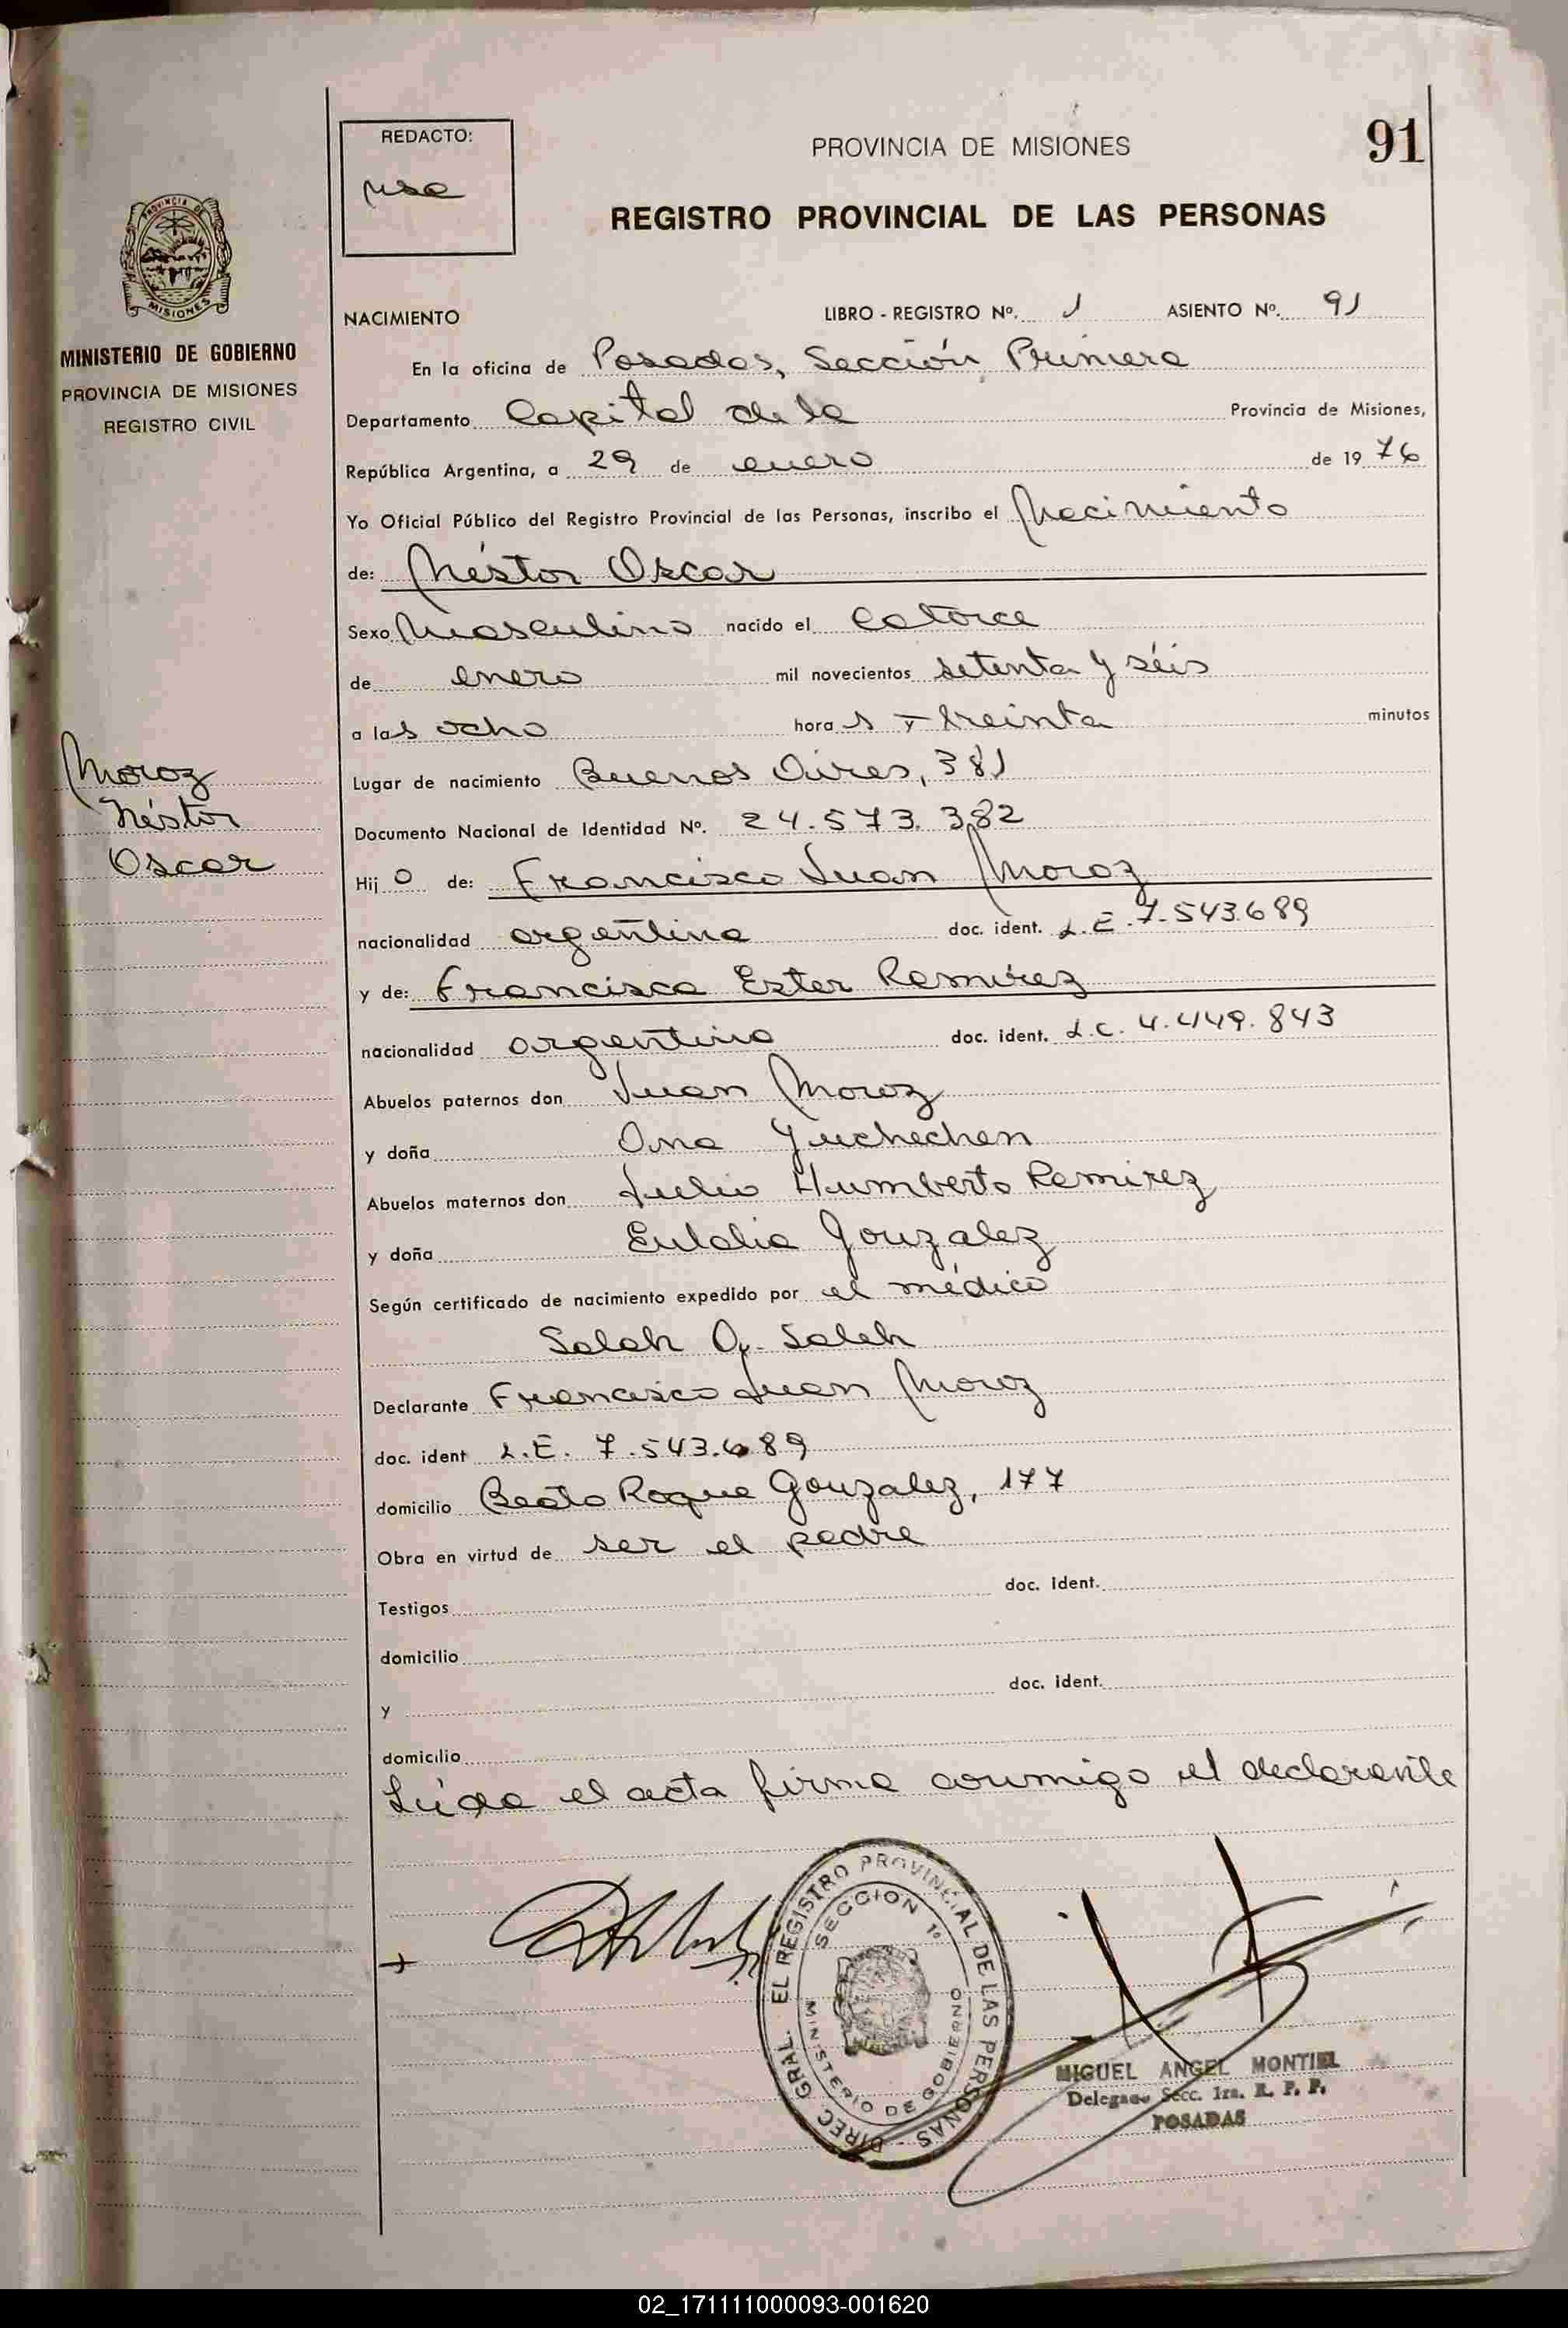 91
REDACTO:
PROVINCIA DE MISIONES
REGISTRO PROVINCIAL DE LAS PERSONAS
PROVINCIA DE
MISIONES
MINISTERIO DE GOBIERNO
PROVINCIA DE MISIONES
REGISTRO CIVIL
NACIMIENTO LIBRO - REGISTRO Nº. 1 ASIENTO Nº. 91
En la oficina de Posadas, Sección Primera
Departamento Capital de la Provincia de Misiones,
República Argentina, a 29 de enero de 1976
Yo Oficial Público del Registro Provincial de las Personas, inscribo el Nacimiento
de: Néstor Oscar
Sexo Masculino nacido el catorce
de enero mil novecientos setenta y séis
a las ocho horas y treinta minutos
Moroz
Néstor
Oscar
Lugar de nacimiento Buenos Aires, 381
Documento Nacional de Identidad Nº. 24.573.382
Hijo de: Francisco Juan Moroz
nacionalidad argentina doc. ident. L.E. 7.543.689
y de: Francisca Ester Ramírez
nacionalidad argentina doc. ident. L.C. 4.449.843
Abuelos paternos don Juan Moroz
y doña Ana Yuchechen
Abuelos maternos don Julio Humberto Ramirez
y doña Eulalia Gonzalez
Según certificado de nacimiento expedido por el médico
Saleh A. Saleh
Declarante Francisco Juan Moroz
doc. ident L.E. 7.543.689
domicilio Beato Roque Gonzalez, 177
Obra en virtud de ser el padre
doc. ident.
Testigos
domicilio
doc. ident.
y
domicilio
Leída el acta firma conmigo el declarante
DIREC. GRAL. EL REGISTRO PROVINCIAL DE LAS PERSONAS
SECCION 1º
MINISTERIO DE GOBIERNO
MIGUEL ANGEL MONTIEL
Delegado Secc. 1ra. R. P. P.
POSADAS
02_171111000093-001620